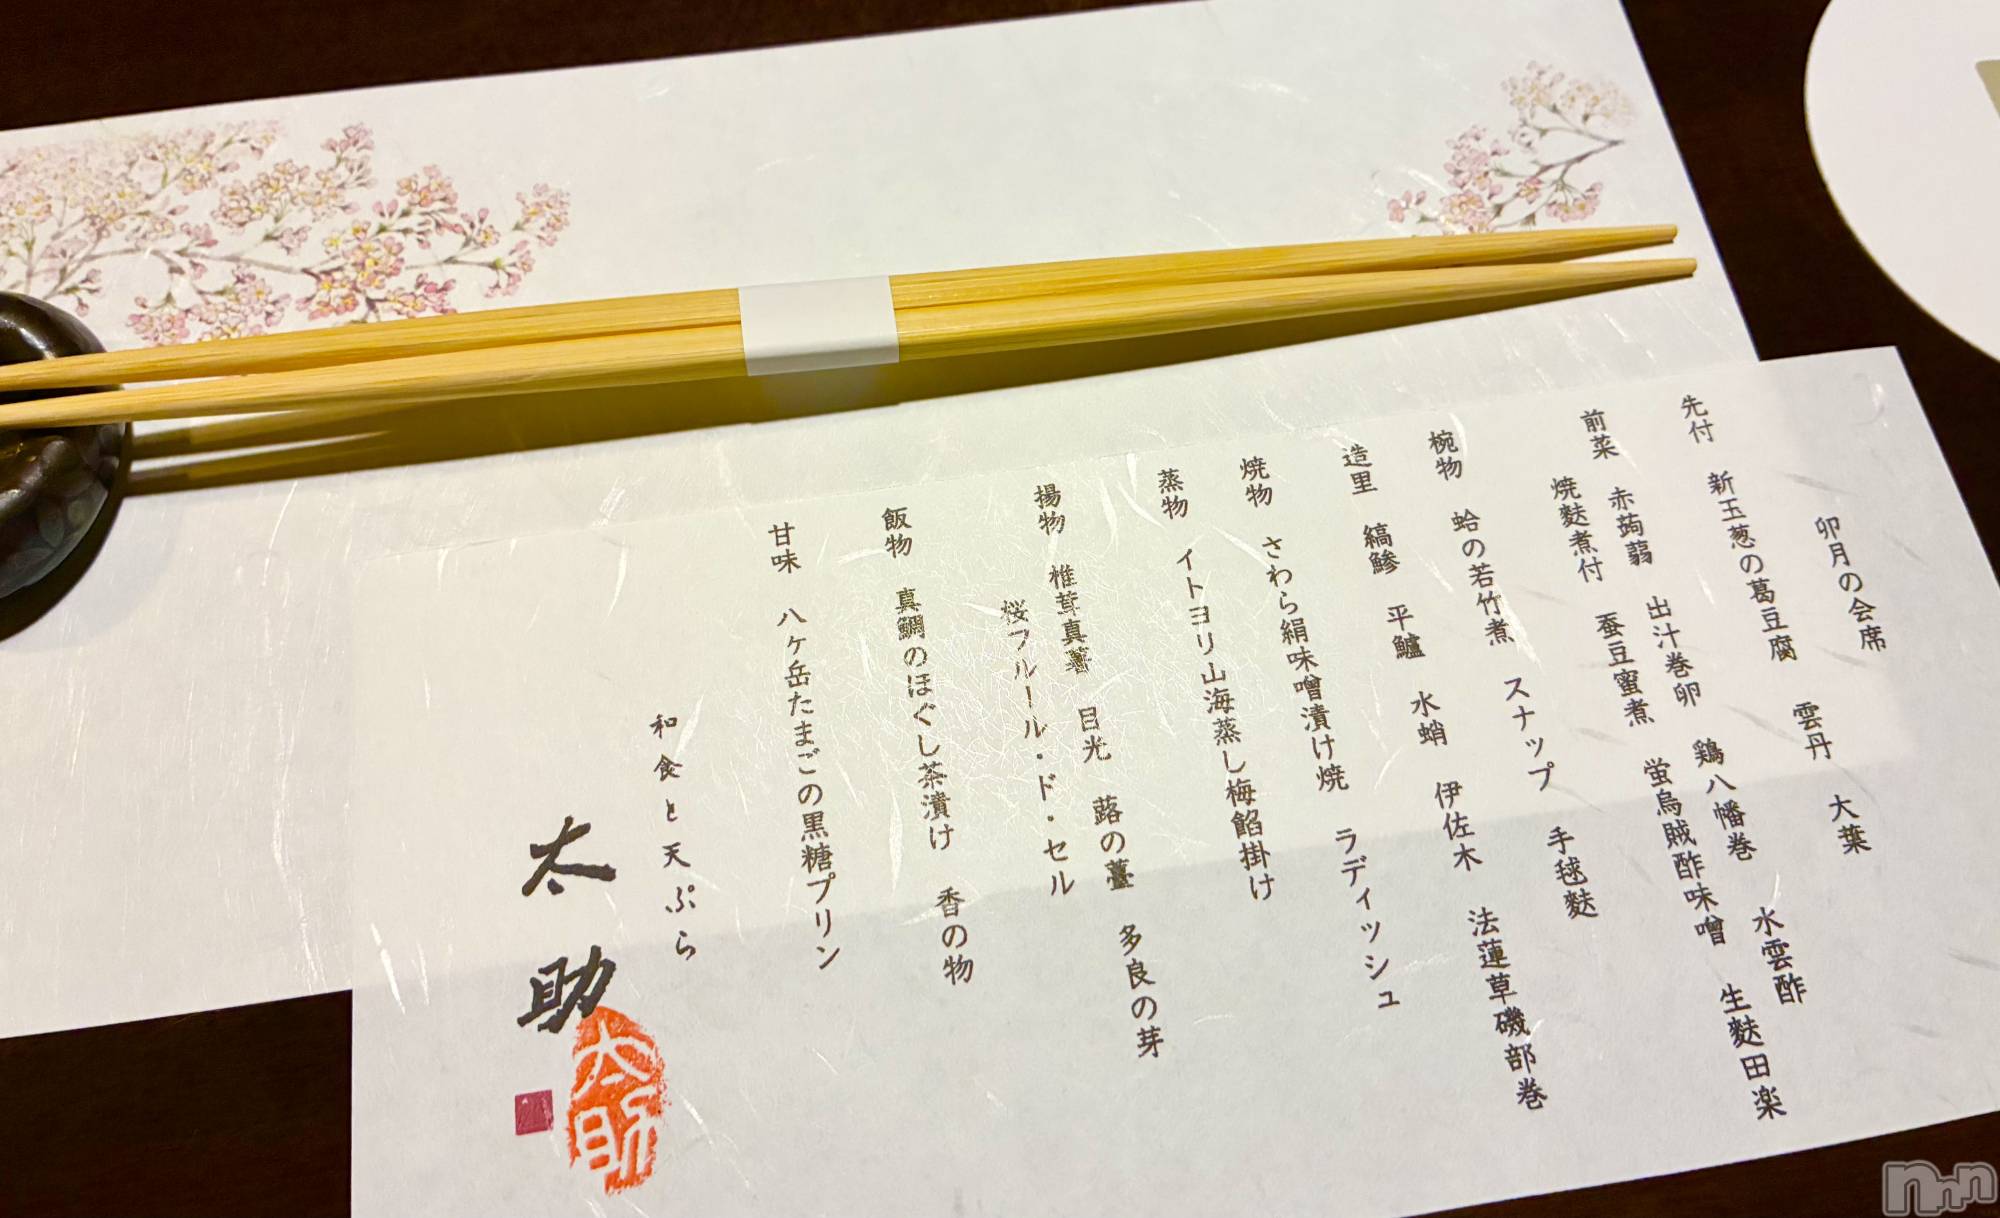 卯月の会席
先付　新玉葱の葛豆腐　雲丹　大葉
前菜　赤蒟蒻　出汁巻卵　鶏八幡巻　水雲酢
焼麩煮付　蚕豆蜜煮　蛍烏賊酢味噌　生麩田楽
椀物　蛤の若竹煮　スナップ　手毬麩
造里　縞鯵　平鱸　水蛸　伊佐木　法蓮草磯部巻
焼物　さわら絹味噌漬け焼　ラディッシュ
蒸物　イトヨリ山海蒸し梅餡掛け
揚物　椎茸真薯　目光　蕗の薹　多良の芽
桜フルール・ド・セル
飯物　真鯛のほぐし茶漬け　香の物
甘味　八ヶ岳たまごの黒糖プリン
和食と天ぷら
太助
太助
nnn